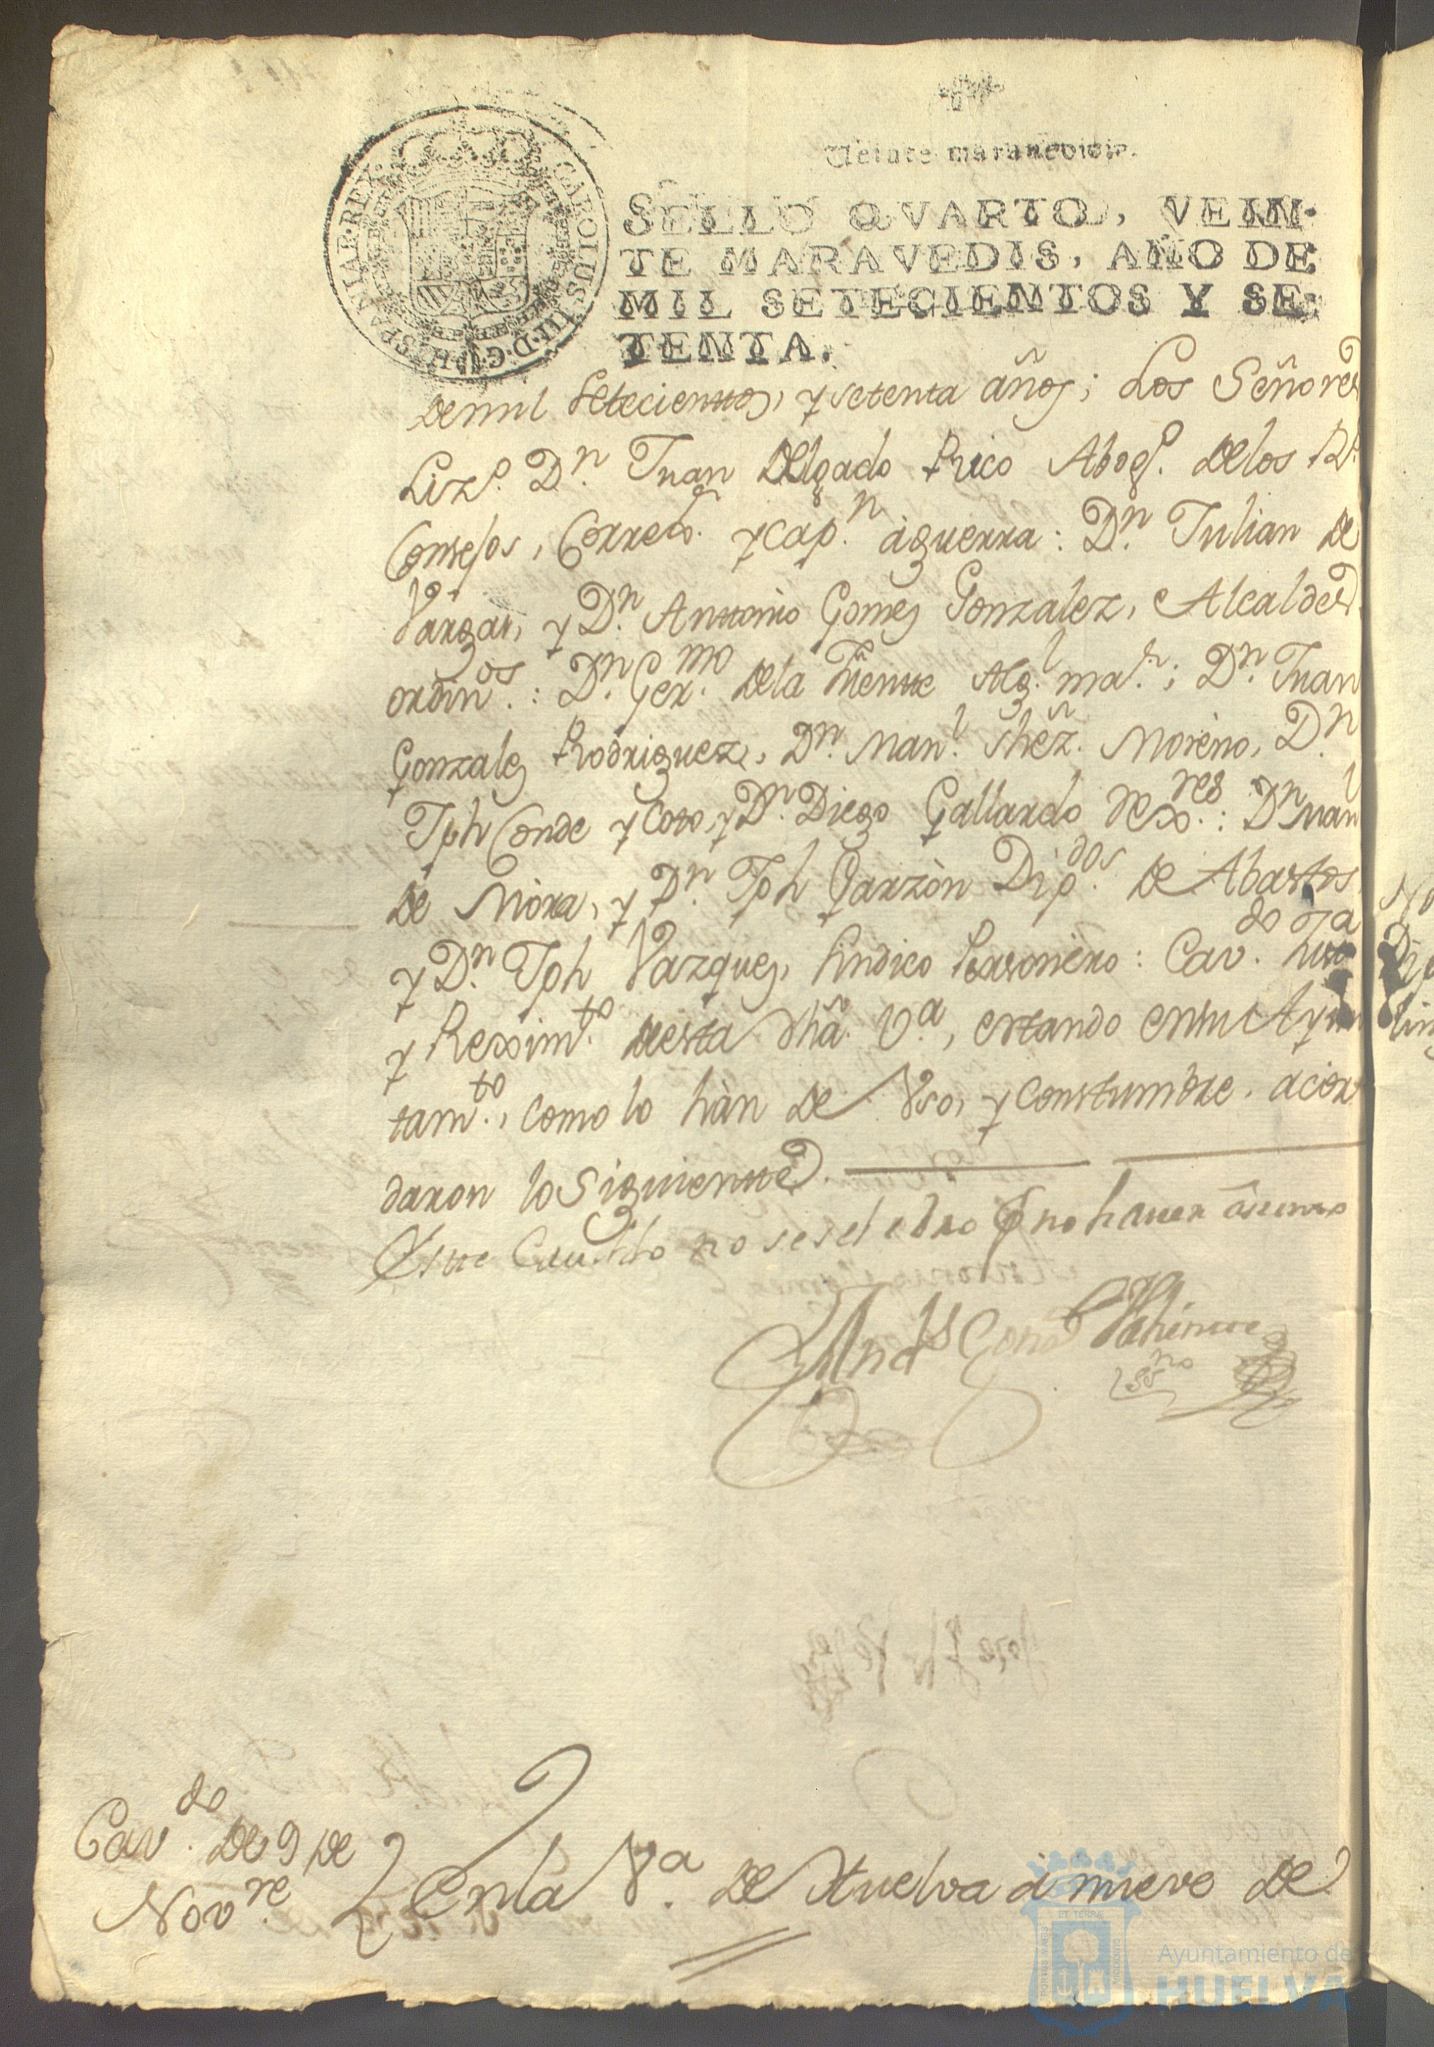 Veinte maravedis.
CAROLUS·III·D·G·HISPANIAR·REX·
SELLO QVARTO, VEIN-
TE MARAVEDIS, AÑO DE
MIL SETECIENTOS Y SE-
TENTA.
de mil setecientos, y setenta años; Los Señores
Lizdo. Dn. Juan Delgado Rico Abogdo. de los Rs.
Consejos, Corregor. y Capn. à guerra: Dn. Julian de
Vargas, y Dn. Antonio Gomez Gonzalez, Alcaldes
ordinos.: Dn. Germo. de la Fuente Algl. mar.; Dn. Juan
Gonzalez Rodriguez, Dn. Manl. Shez. Moreno, Dn.
Jph Conde y Coto, y Dn. Diego Gallardo Rexres.: Dn. Manl
de Mòra, y Dn. Jph Garzòn Dipdos. de Abastos
y Dn. Jph Vazquez, Sindico Personèro: Cavdo. Justa
y Reximto. desta dha. Va., estando en su Ayun
tamto., como lo hàn de Vso, y Constumbre. acor
daron lo Siguiente.
Este Cavildo no se selebro por no haver asumto
Ands Gonz
esno
Cavdo. de 9 de
Novre.
En la Va. de Huelva à nueve de
Ayuntamiento de
HUELVA